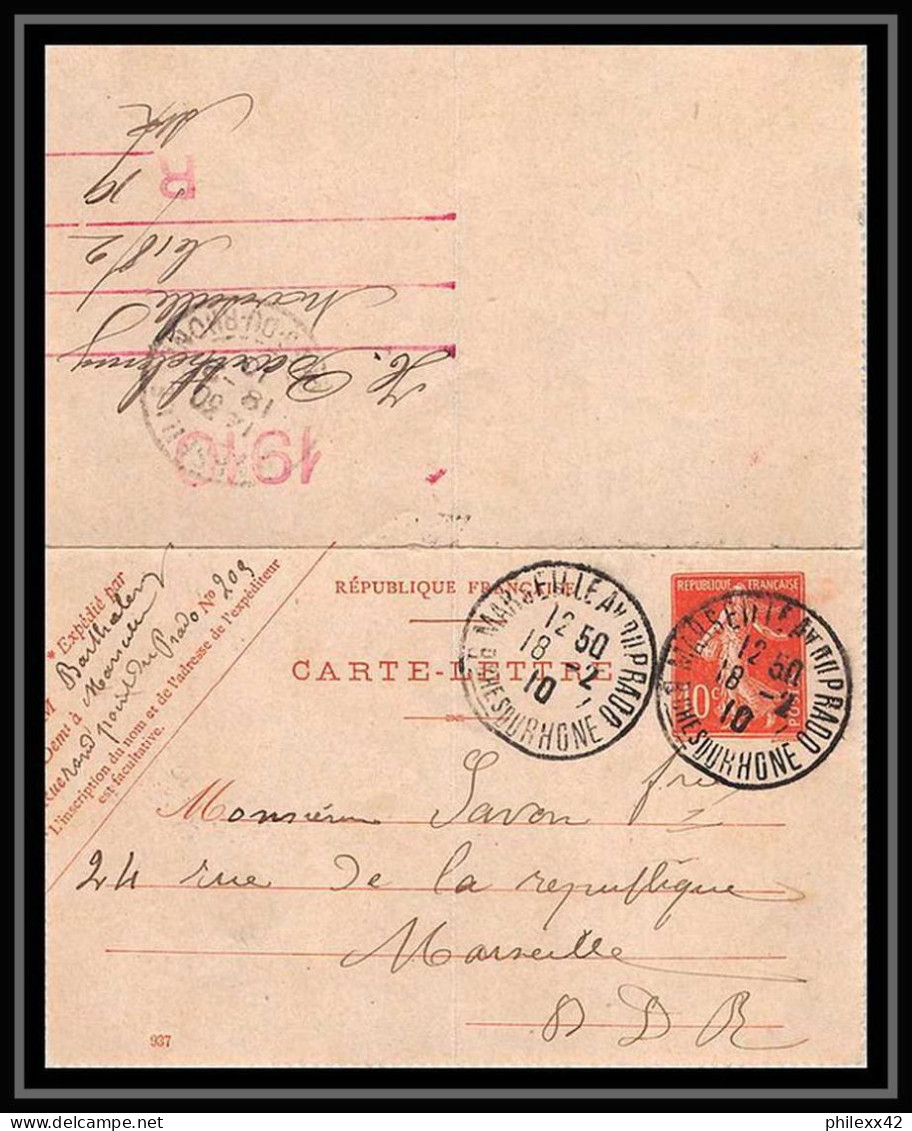 H. Barthelemy
Marseille
le 18/2
R
1910
RÉPUBLIQUE FRANÇAISE
CARTE-LETTRE
* Expédié par
M Barthelemy
Demt à Marseille
Rue rond point du Prado N° 209
L'inscription du nom et de l'adresse de l'expéditeur
est facultative.
MARSEILLE AV. DU PRADO
12 50
18 -2
10
BCHES DU RHONE
REPUBLIQUE FRANÇAISE
10c
MARSEILLE AV. DU PRADO
12 50
18 -2
10
BCHES DU RHONE
Monsieur Savon
24 rue de la republique
Marseille
B D R
937
philexx42